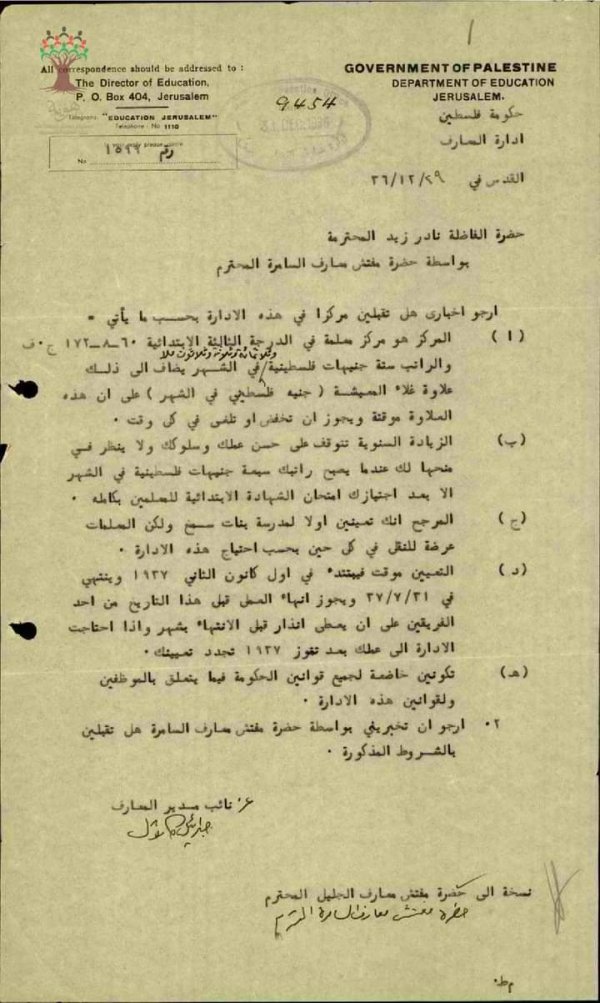 1
All correspondence should be addressed to :
The Director of Education,
P. O. Box 404, Jerusalem
Telegrams: "EDUCATION JERUSALEM"
Telephone: No 1110
please quote
No. رقم ١٥٩٩
9454
31 DEC 1936
GOVERNMENT OF PALESTINE
DEPARTMENT OF EDUCATION
JERUSALEM.
حكومة فلسطين
ادارة المعارف
القدس في ٣٦/١٢/٢٩
حضرة الفاضلة نادر زيد المحترمة
بواسطة حضرة مفتش معارف السامرة المحترم
ارجو اخباري هل تقبلين مركزا في هذه الادارة بحسب ما يأتي =
(ا) المركز هو مركز معلمة في الدرجة الثالثة الابتدائية ٦٠-٨-١٧٢ ج٠ف
وثلاثماية وثلاثة وثلاثون ملا
والراتب ستة جنيهات فلسطينية/في الشهر يضاف الى ذلك
علاوة غلاء المعيشة ( جنيه فلسطيني في الشهر ) على ان هذه
العلاوة موقتة ويجوز ان تخفض او تلغى في كل وقت ٠
(ب) الزيادة السنوية تتوقف على حسن عملك وسلوكك ولا ينظر في
منحها لك عندما يصبح راتبك سبعة جنيهات فلسطينية في الشهر
الا بعد اجتيازك امتحان الشهادة الابتدائية للمعلمين بكامله ٠
(ج) المرجح انك تعينين اولا لمدرسة بنات سمخ ولكن المعلمات
عرضة للنقل في كل حين بحسب احتياج هذه الادارة ٠
(د) التعيين موقت فيبتدء في اول كانون الثاني ١٩٣٧ وينتهي
في ٣٧/٧/٣١ ويجوز انهاء العمل قبل هذا التاريخ من احد
الفريقين على ان يعطى انذار قبل الانتهاء بشهر واذا احتاجت
الادارة الى عملك بعد تموز ١٩٣٧ تجدد تعيينك ٠
(هـ) تكونين خاضعة لجميع قوانين الحكومة فيما يتعلق بالموظفين
ولقوانين هذه الادارة ٠
٢٠ ارجو ان تخبريني بواسطة حضرة مفتش معارف السامرة هل تقبلين
بالشروط المذكورة ٠
عن نائب مدير المعارف
نسخة الى حضرة مفتش معارف الجليل المحترم
حضرة مفتش معارف السامرة المحترم
م٠ط٠